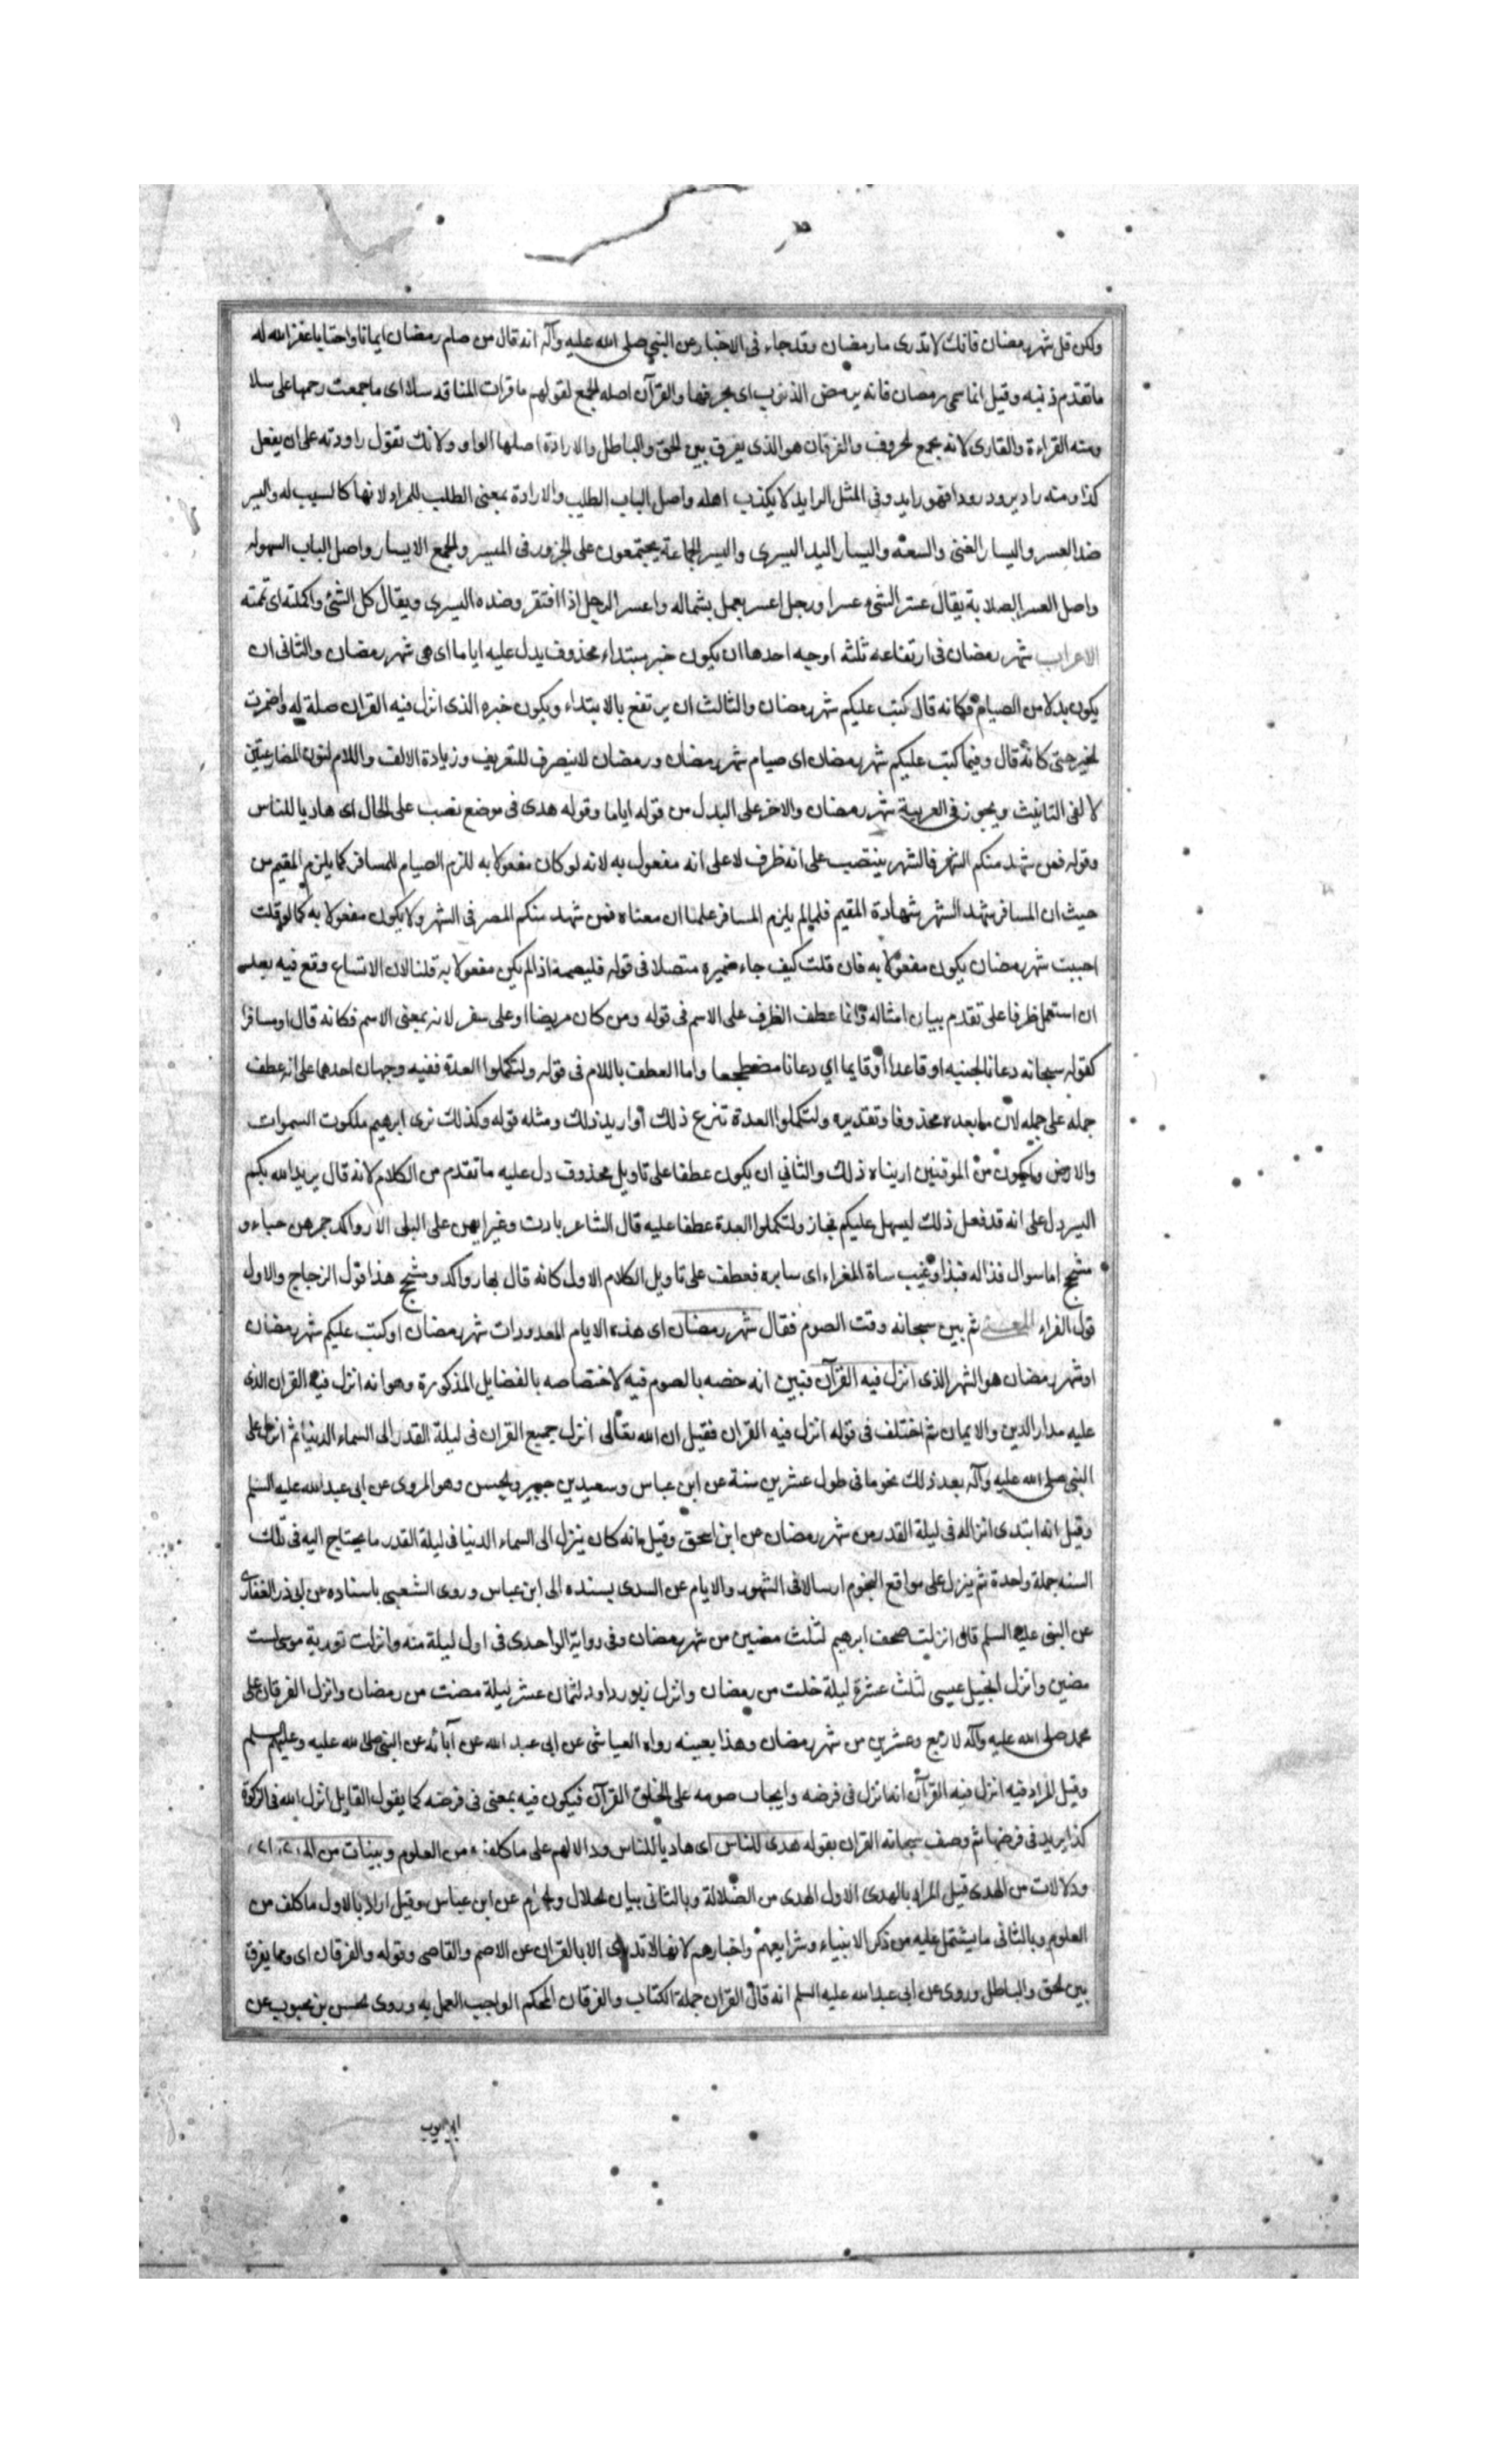 ولكن قل شهر رمضان فانك لا تدرى ما رمضان وقد جاء فى الاخبار عن النبى صلى الله عليه وآله انه قال من صام رمضان ايمانا واحتسابا غفر الله له
ما تقدم من ذنبه وقيل انما سمى رمضان فانه يرمض الذنوب اى يحرقها والقرآن اصله الجمع لقولهم ما قرات الناقة سلا اى ما جمعت رحمها على سلا
ومنه القراءة والقارى لانه يجمع الحروف والفرقان هو الذى يفرق بين الحق والباطل والارادة اصلها الواو ولانك تقول راودته على ان يفعل
كذا ومنه راد يرود رودا فهو رايد وفى المثل الرايد لا يكذب اهله واصل الباب الطلب والارادة بمعنى الطلب للمراد لانها كالسبب له واليسر
ضد العسر واليسار الغنى والسعة واليسار اليد اليسرى واليسر الجماعة يجتمعون على الجزور فى الميسر والجمع الايسار واصل الباب السهولة
واصل العسر الصلابة يقال عسر الشئ عسرا ورجل اعسر يعمل بشماله واعسر الرجل اذا افتقر وضده اليسرى ويقال كل الشئ واكملته اى تممته
الاعراب شهر رمضان فى ارتفاعه ثلثه اوجه احدها ان يكون خبر مبتداء محذوف يدل عليه اياما اى هى شهر رمضان والثانى ان
يكون بدلا من الصيام فكانه قال كتب عليكم شهر رمضان والثالث ان يرتفع بالابتداء ويكون خبره الذى انزل فيه القران صلة له واضمرت
الخبر حتى كانه قال وفيما كتب عليكم شهر رمضان اى صيام شهر رمضان ورمضان لا ينصرف للتعريف وزيادة الالف واللام لنون المضارعتين
لالفى التانيث ويجوز فى العربية شهر رمضان والاخر على البدل من قوله اياما وقوله هدى فى موضع نصب على الحال اى هاديا للناس
وقوله فمن شهد منكم الشهر فالشهر ينتصب على انه ظرف لا على انه مفعول به لانه لو كان مفعولا به للزم الصيام للمسافر كما يلزم المقيم من
حيث ان المسافر يشهد الشهر شهادة المقيم فلما لم يلزم المسافر علمنا ان معناه فمن شهد منكم المصر فى الشهر ولا يكون مفعولا به كما لو قلت
احببت شهر رمضان يكون مفعولا به فان قلت كيف جاء ضميره متصلا فى قوله فليصمه اذا لم يكن مفعولا به قلنا لان الاتساع وقع فيه بعد
ان استعمل ظرفا على تقدم بيان امثاله وانما عطف الظرف على الاسم فى قوله ومن كان مريضا او على سفر لانه بمعنى الاسم فكانه قال او مسافرا
كقوله سبحانه دعانا لجنبه او قاعدا او قايما اي دعانا مضطجعا واما العطف باللام فى قوله ولتكملوا العدة ففيه وجهان احدهما على انه عطف
جمله على جمله لان ما بعده محذوفا وتقديره ولتكملوا العدة شرع ذلك او اريد ذلك ومثله قوله وكذلك نرى ابرهيم ملكوت السموات
والارض وليكون من الموقنين اريناه ذلك والثاني ان يكون عطفا على تاويل محذوف دل عليه ما تقدم من الكلام لانه قال يريد الله بكم
اليسر دل على انه قد فعل ذلك ليسهل عليكم فجاز ولتكملوا العدة عطفا عليه قال الشاعر بادت وغير ايهن على البلى الا رواكد جمرهن هباء و
مشجج اما سوال قذاله فبدا وغيب ساة المغراء اى سايره فعطف على تاويل الكلام الاول كانه قال بها رواكد ومشجج هذا قول الزجاج والاول
قول الفراء المعنى ثم بين سبحانه وقت الصوم فقال شهر رمضان اى هذه الايام المعدودات شهر رمضان او كتب عليكم شهر رمضان
او شهر رمضان هو الشهر الذى انزل فيه القرآن فبين انه خصه بالصوم فيه لاختصاصه بالفضايل المذكورة وهو انه انزل فيه القران الذى
عليه مدار الدين والايمان ثم اختلف فى قوله انزل فيه القران فقيل ان الله تعالى انزل جميع القران فى ليلة القدر الى السماء الدنيا ثم انزل على
النبى صلى الله عليه وآله بعد ذلك نجوما فى طول عشرين سنة عن ابن عباس وسعيد بن جبير والحسن وهو المروى عن ابى عبد الله عليه السلم
وقيل انه ابتدى انزاله فى ليلة القدر من شهر رمضان عن ابن اسحق وقيل انه كان ينزل الى السماء الدنيا فى ليلة القدر ما يحتاج اليه فى تلك
السنه جملة واحدة ثم ينزل على مواقع النجوم ارسالا فى الشهور والايام عن السدى يسنده الى ابن عباس وروى الشعبى باسناده عن ابى ذر الغفارى
عن النبى عليه السلم قال انزلت صحف ابرهيم لثلث مضين من شهر رمضان وفى رواية الواحدى فى اول ليلة منه وانزلت تورية موسى لست
مضين وانزل انجيل عيسى لثلث عشرة ليلة خلت من رمضان وانزل زبور داود لثمان عشر ليلة مضت من رمضان وانزل الفرقان على
محمد صلى الله عليه وآله لاربع وعشرين من شهر رمضان وهذا بعينه رواه العياشى عن ابى عبد الله عن آبائه عن النبى صلى الله عليه وعليهم السلم
وقيل المراد فيه انزل فيه القرآن انه انزل فى فرضه وايجاب صومه على الخلق القرآن فيكون فيه بمعنى فى فرضه كما يقول القايل انزل الله فى الزكوة
كذا يريد فى فرضها ثم وصف سبحانه القران بقوله هدى للناس اى هاديا للناس ودالا لهم على ما كلفوه من العلوم وبينات من الهدى
ودلالات من الهدى قيل المراد بالهدى الاول الهدى من الضلالة وبالثانى بيان الحلال والحرام عن ابن عباس وقيل اراد بالاول ما كلف من
العلوم وبالثانى ما يشتمل عليه من ذكر الانبياء وشرايعهم واخبارهم لانها لا تدرى الا بالقران عن الاصم والقاضى وقوله والفرقان اى ومما يفرق
بين الحق والباطل وروى عن ابى عبد الله عليه السلم انه قال القران جملة الكتاب والفرقان المحكم الواجب العمل به وروى الحسن بن محبوب عن